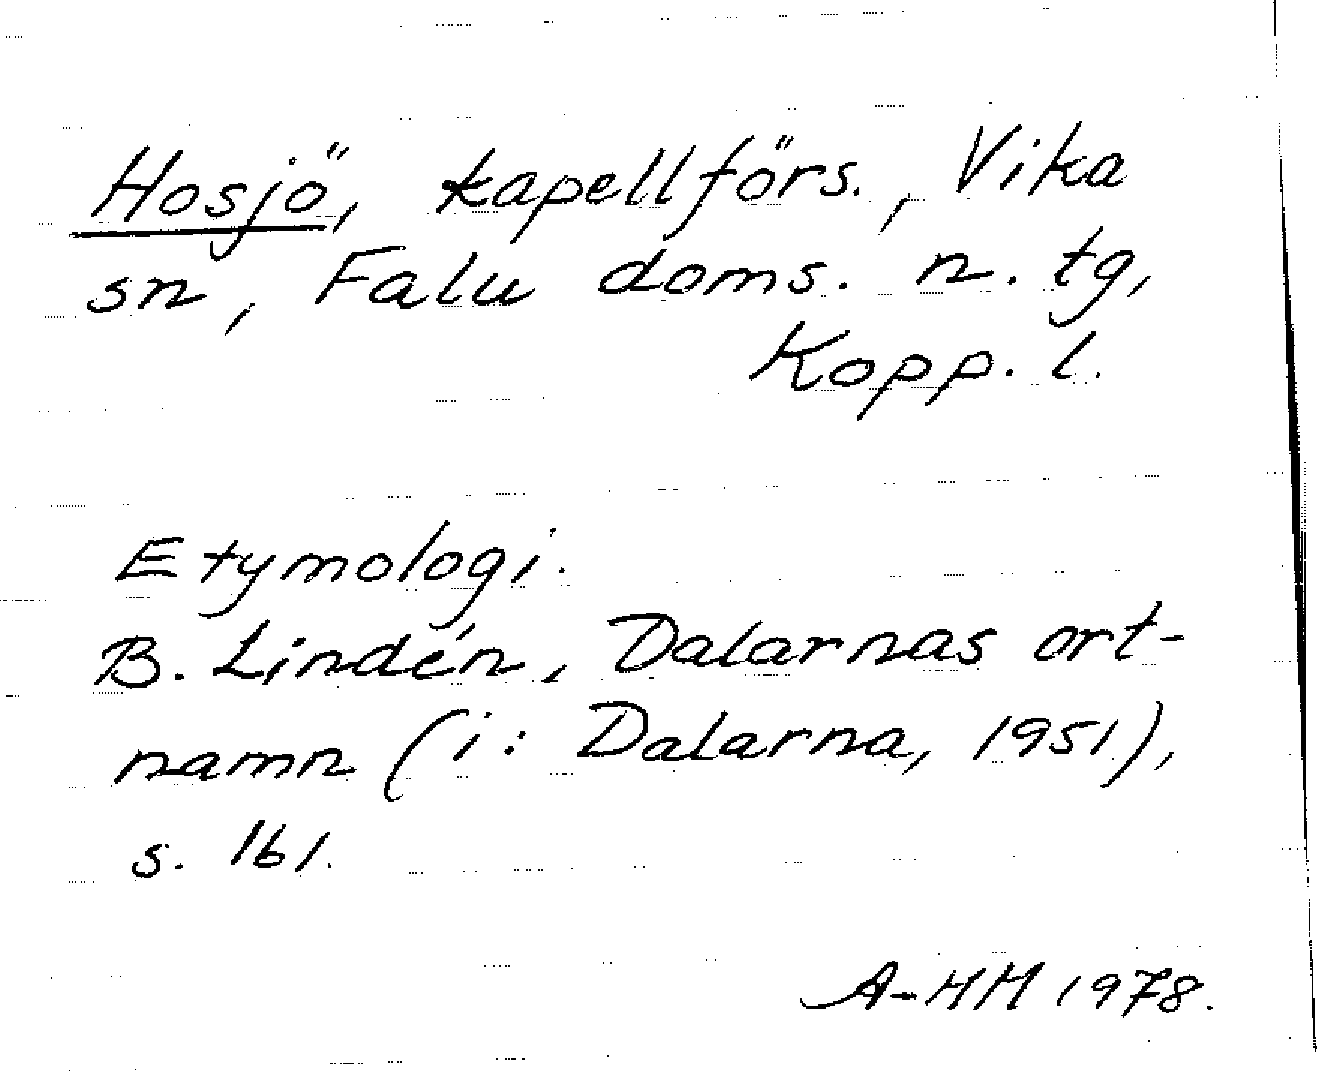 Hosjö, kapellförs., Vika
sn, Falu doms. n. tg,
Kopp. l.
Etymologi.
B. Lindén, Dalarnas ort-
namn (i: Dalarna, 1951),
s. 161.
A-HM 1978.